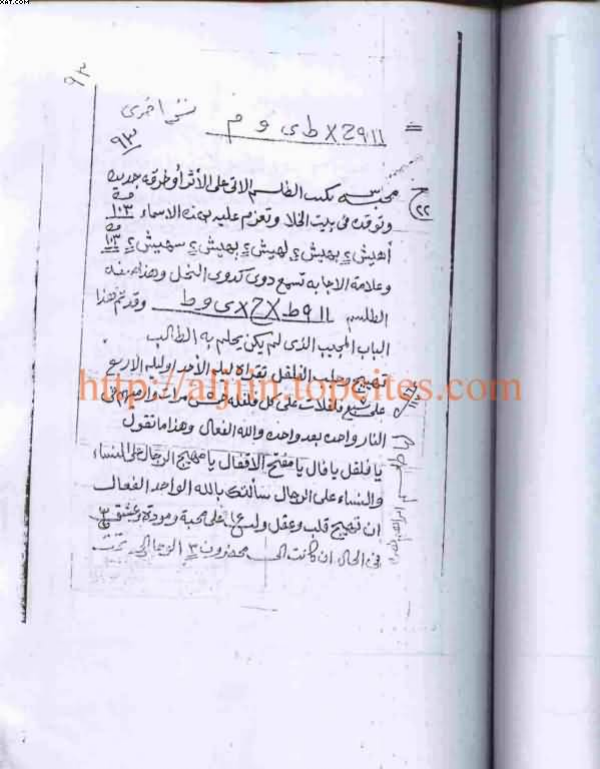 XAT.COM
٩٣
نسخه اخرى
= ١١ ٩ Z X ط ى و م
٩٣
ح ٢٢ محبه يكتب الطلسم الاتى على الأثر أو طرقه جديده
وتوقد فى بيت الخلا وتعزم عليه بهذه الاسماء ١٠٣ مرة
أهيش ٢ بهيش ٢ لهيش ٢ بهيش ٢ سهيش ٢ ١٠٣ مرة
وعلامة الاجابه تسمع دوى كدوى النحل وهذا صفه
الطلسم ١١ ٩ ط X Z X ى و ط وقد تم هذا
الباب المجيب الذى لم يكن يحلم به الطالب
تهيج وجلب الفلفل تقرأه ليلة الأحد او ليلة الاربع
على سبع فلفلات على كل فلفله خمس مرات وارميهم فى
النار واحده بعد واحده والله الفعال وهذا ما تقول
يا فلفل يا فال يا مفتح الاقفال يا مهيج الرجال على النساء
والنساء على الرجال سألتك بالله الواحد الفعال
ان تهيج قلب وعقل على محبة ومودة وعشق
فى الحال ان كانت الا صيحة
http://aljiin.topcites.com